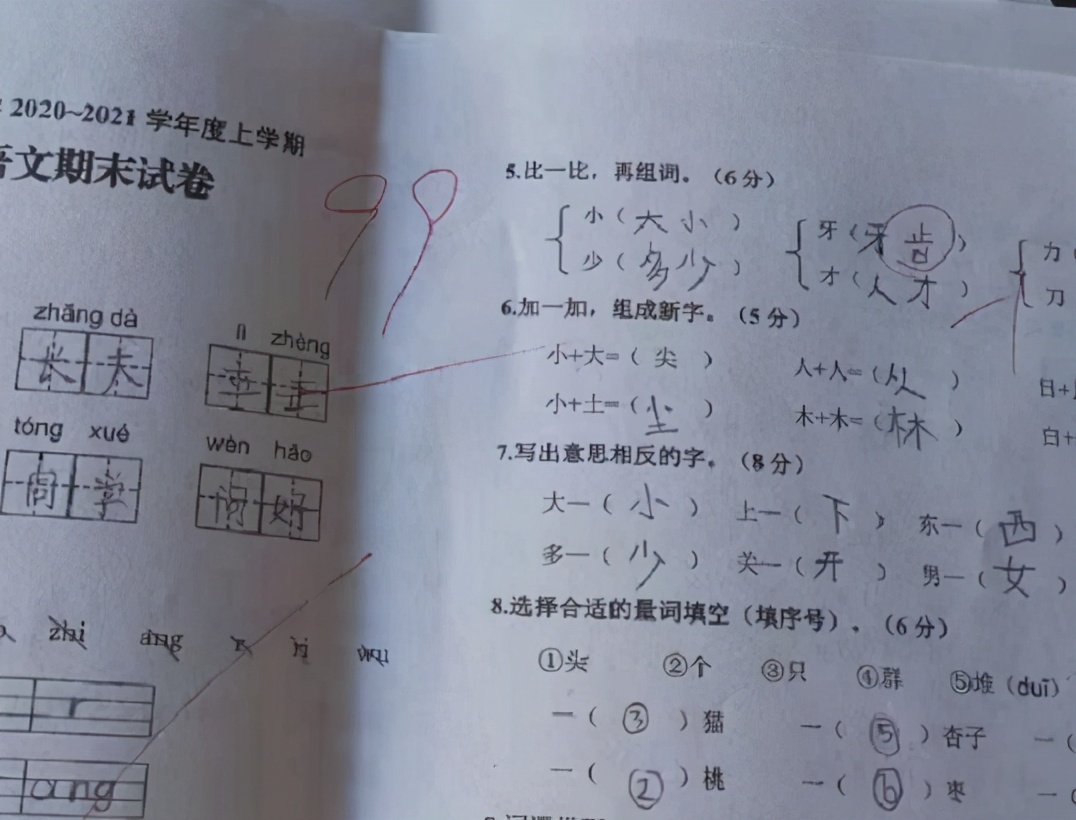 2020~2021 学年度上学期
语文期末试卷
99
zhǎng dà
长大
lì zhèng
tóng xué
同学
wèn hǎo
问好
zhi ang r ri wu
r
ang
5.比一比，再组词。（6分）
小（大小） 牙（牙齿） 力（
少（多少） 才（人才） 刀
6.加一加，组成新字。（5分）
小+大=（尖） 人+人=（从） 日+
小+土=（尘） 木+木=（林） 白+
7.写出意思相反的字。（8分）
大—（小） 上—（下） 东—（西）
多—（少） 关—（开） 男—（女）
8.选择合适的量词填空（填序号）。（6分）
①头 ②个 ③只 ④群 ⑤堆（duī）
一（③）猫 一（⑤）杏子 一（
一（②）桃 一（⑥）枣 一（